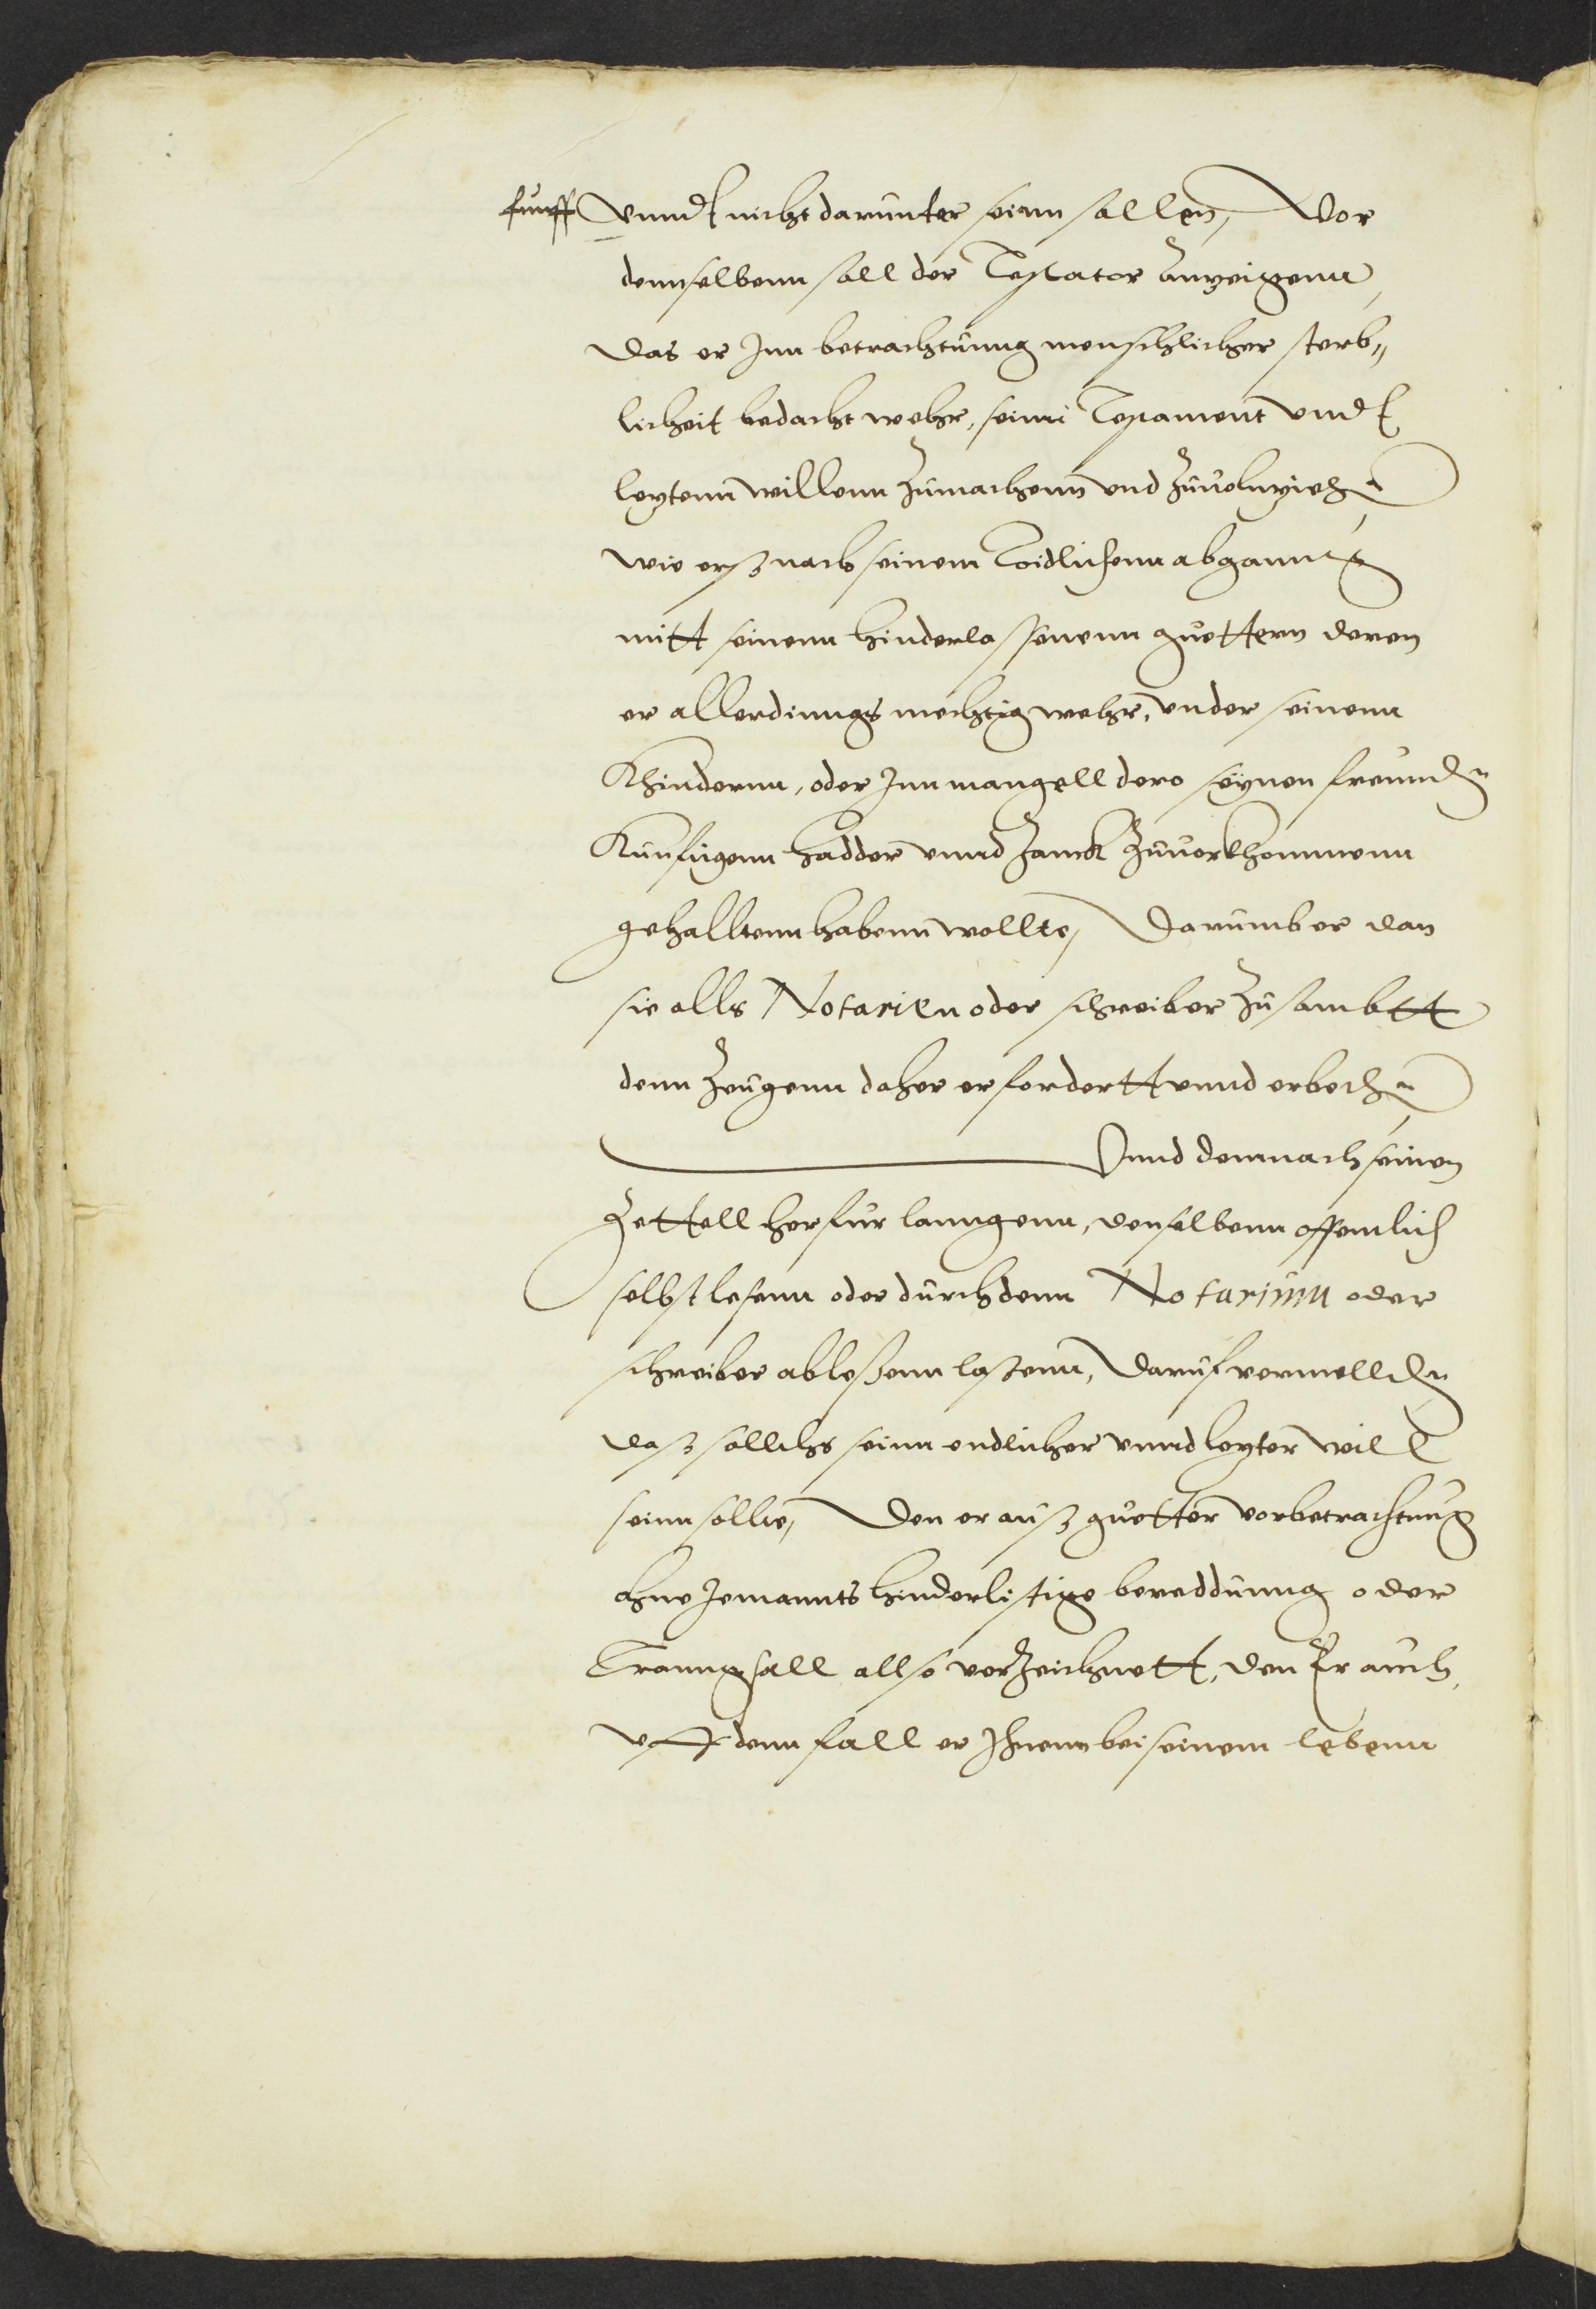 funff vnndt nicht darunter seinn sollen, Vor
dennselbenn soll der Testator Anzeigenn,
das er Jnn betrachtunng menschlicher sterb„
licheit bedacht wehr, seinn Testament vnndt
leztenn willenn Zumachenn vnd Zuvolnziehen,
wie erß nach seinem Toidlichenn abganng
mitt seinenn hinderlassenenn guettern deren
er allerdinngs mechtig wehr, vnder seinenn
Khindernn, oder Jnn mangell dero seynen freunden
Kunfftigenn hadder vnnd Zanck Zuvorkhommenn
gehalltenn habenn wollte, Darumb er dan
sie alls Notarien oder schreiber Zusambtt
denn Zeugenn daher erfordertt vnnd erbethen,
Vnnd demnach seinen
Zettell herfur lanngenn, denselbenn offentlich
selbst lesenn oder durch denn Notarium oder
schreiber ableßenn laßenn, Daruf vermellden
daß sollichs seinn endlicher vnnd lezter will
seinn sollte, Den er auß guetter vorbetrachtung
ohne Jemannts hinderlistige bereddunng oder
Tranngsall allso verzeichnett, den Er auch,
vff denn fall er Jhnenn bei seinem lebenn